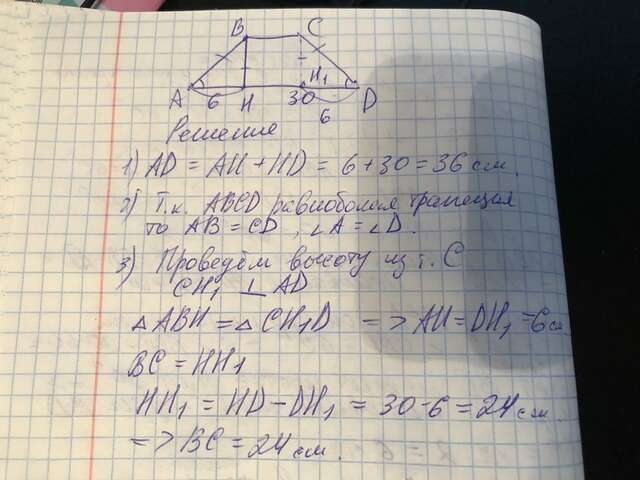 B C
A 6 H 30 H₁ D
6
Решение
1) AD = AH + HD = 6 + 30 = 36 см.
2) Т.к. ABCD равнобокая трапеция
то AB = CD , ∠A = ∠D.
3) Проведём высоту из т. C
CH₁ ⊥ AD
△ABH = △CH₁D => AH = DH₁ = 6 см.
BC = HH₁
HH₁ = HD - DH₁ = 30 - 6 = 24 см.
=> BC = 24 см.